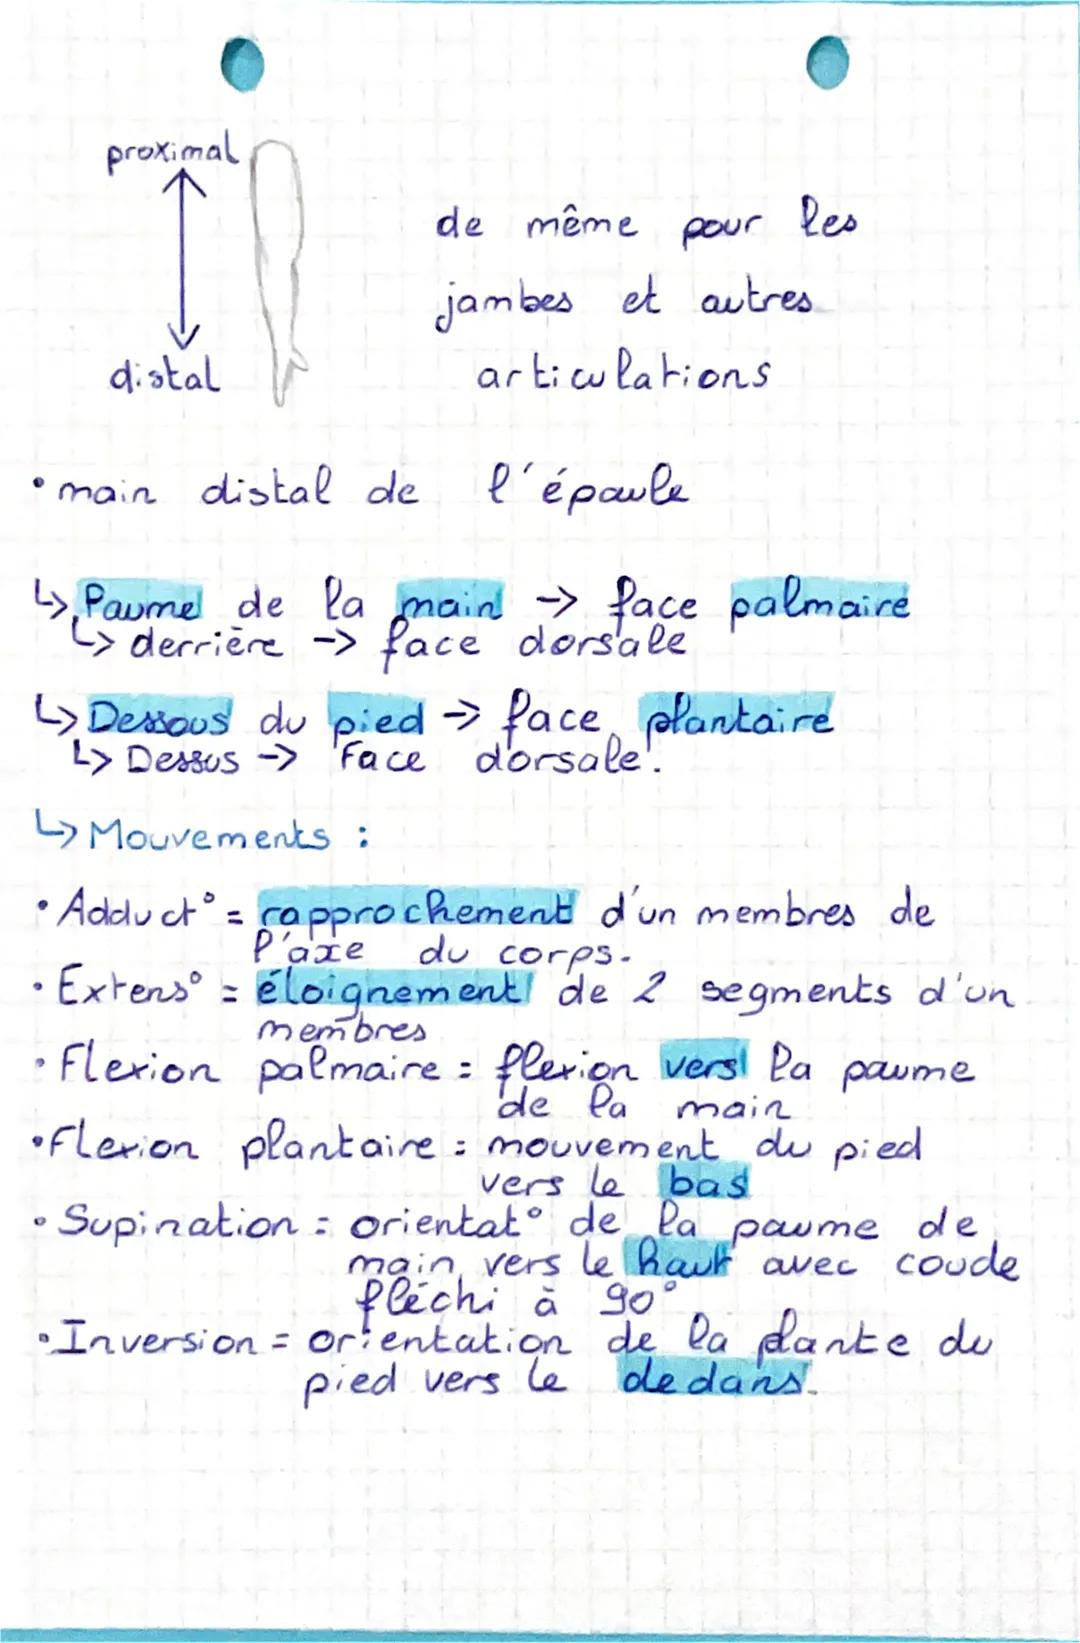 proximal
distal
de même pour les
jambes et autres
articulations
• main distal de l'épaule
↳ Paume de la main -> face palmaire
↳ derrière -> face dorsale
↳ Dessous du pied -> face plantaire
↳ Dessus -> Face dorsale.
↳ Mouvements :
• Adduct° = rapprochement d'un membres de
l'axe du corps.
• Extens° = éloignement de 2 segments d'un
membres
• Flexion palmaire = flexion vers la paume
de la main
• Flexion plantaire = mouvement du pied
vers le bas
• Supination = orientat° de la paume de
main vers le haut avec coude
fléchi à 90°
• Inversion = orientation de la plante du
pied vers le dedans.